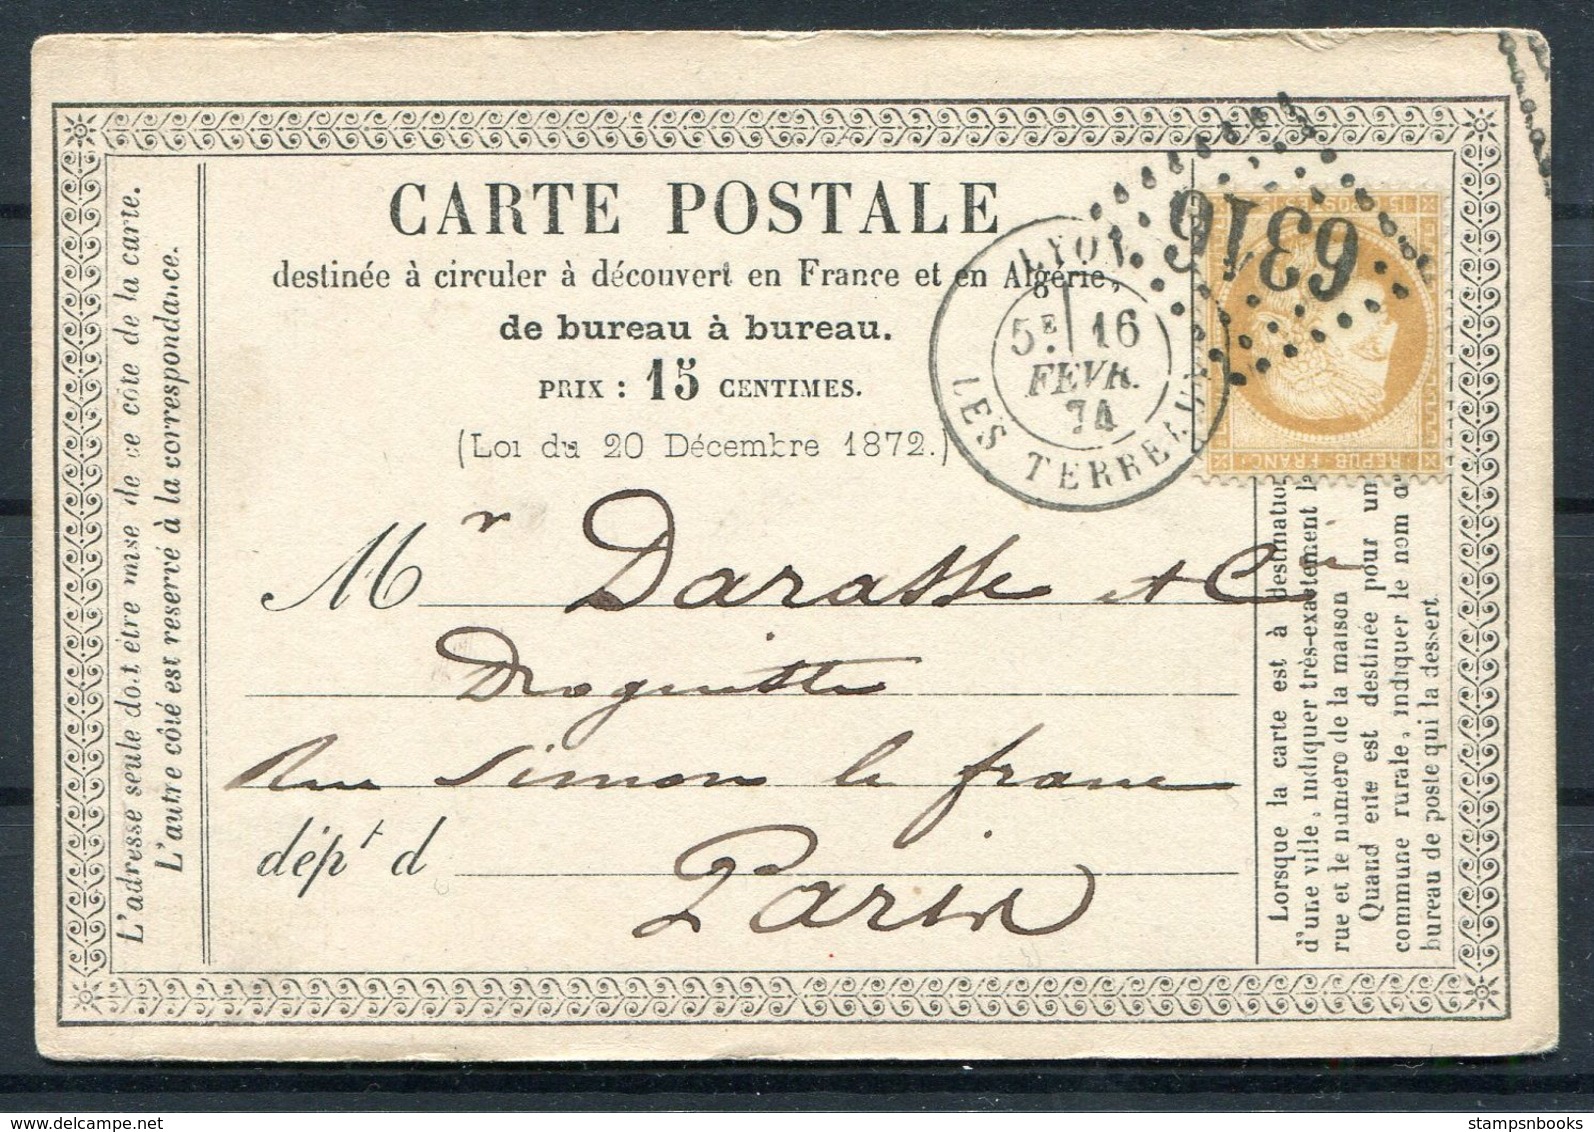 CARTE POSTALE
destinée à circuler à découvert en France et en Algérie,
de bureau à bureau.
PRIX : 15 CENTIMES.
(Loi du 20 Décembre 1872.)
L'adresse seule doit être mise de ce côté de la carte.
L'autre côté est reservé à la correspondance.
LYON
5E 16
FEVR.
74
LES TERREAUX
6316
15 POSTES 15
REPUB. FRANC.
Mr Darasse et Cie
Droguiste
Rue Simon le franc
dépt d Paris
Lorsque la carte est à destination
d'une ville, indiquer très-exactement la
rue et le numéro de la maison
Quand elle est destinée pour un
commune rurale, indiquer le nom d
bureau de poste qui la dessert.
stampsnbooks